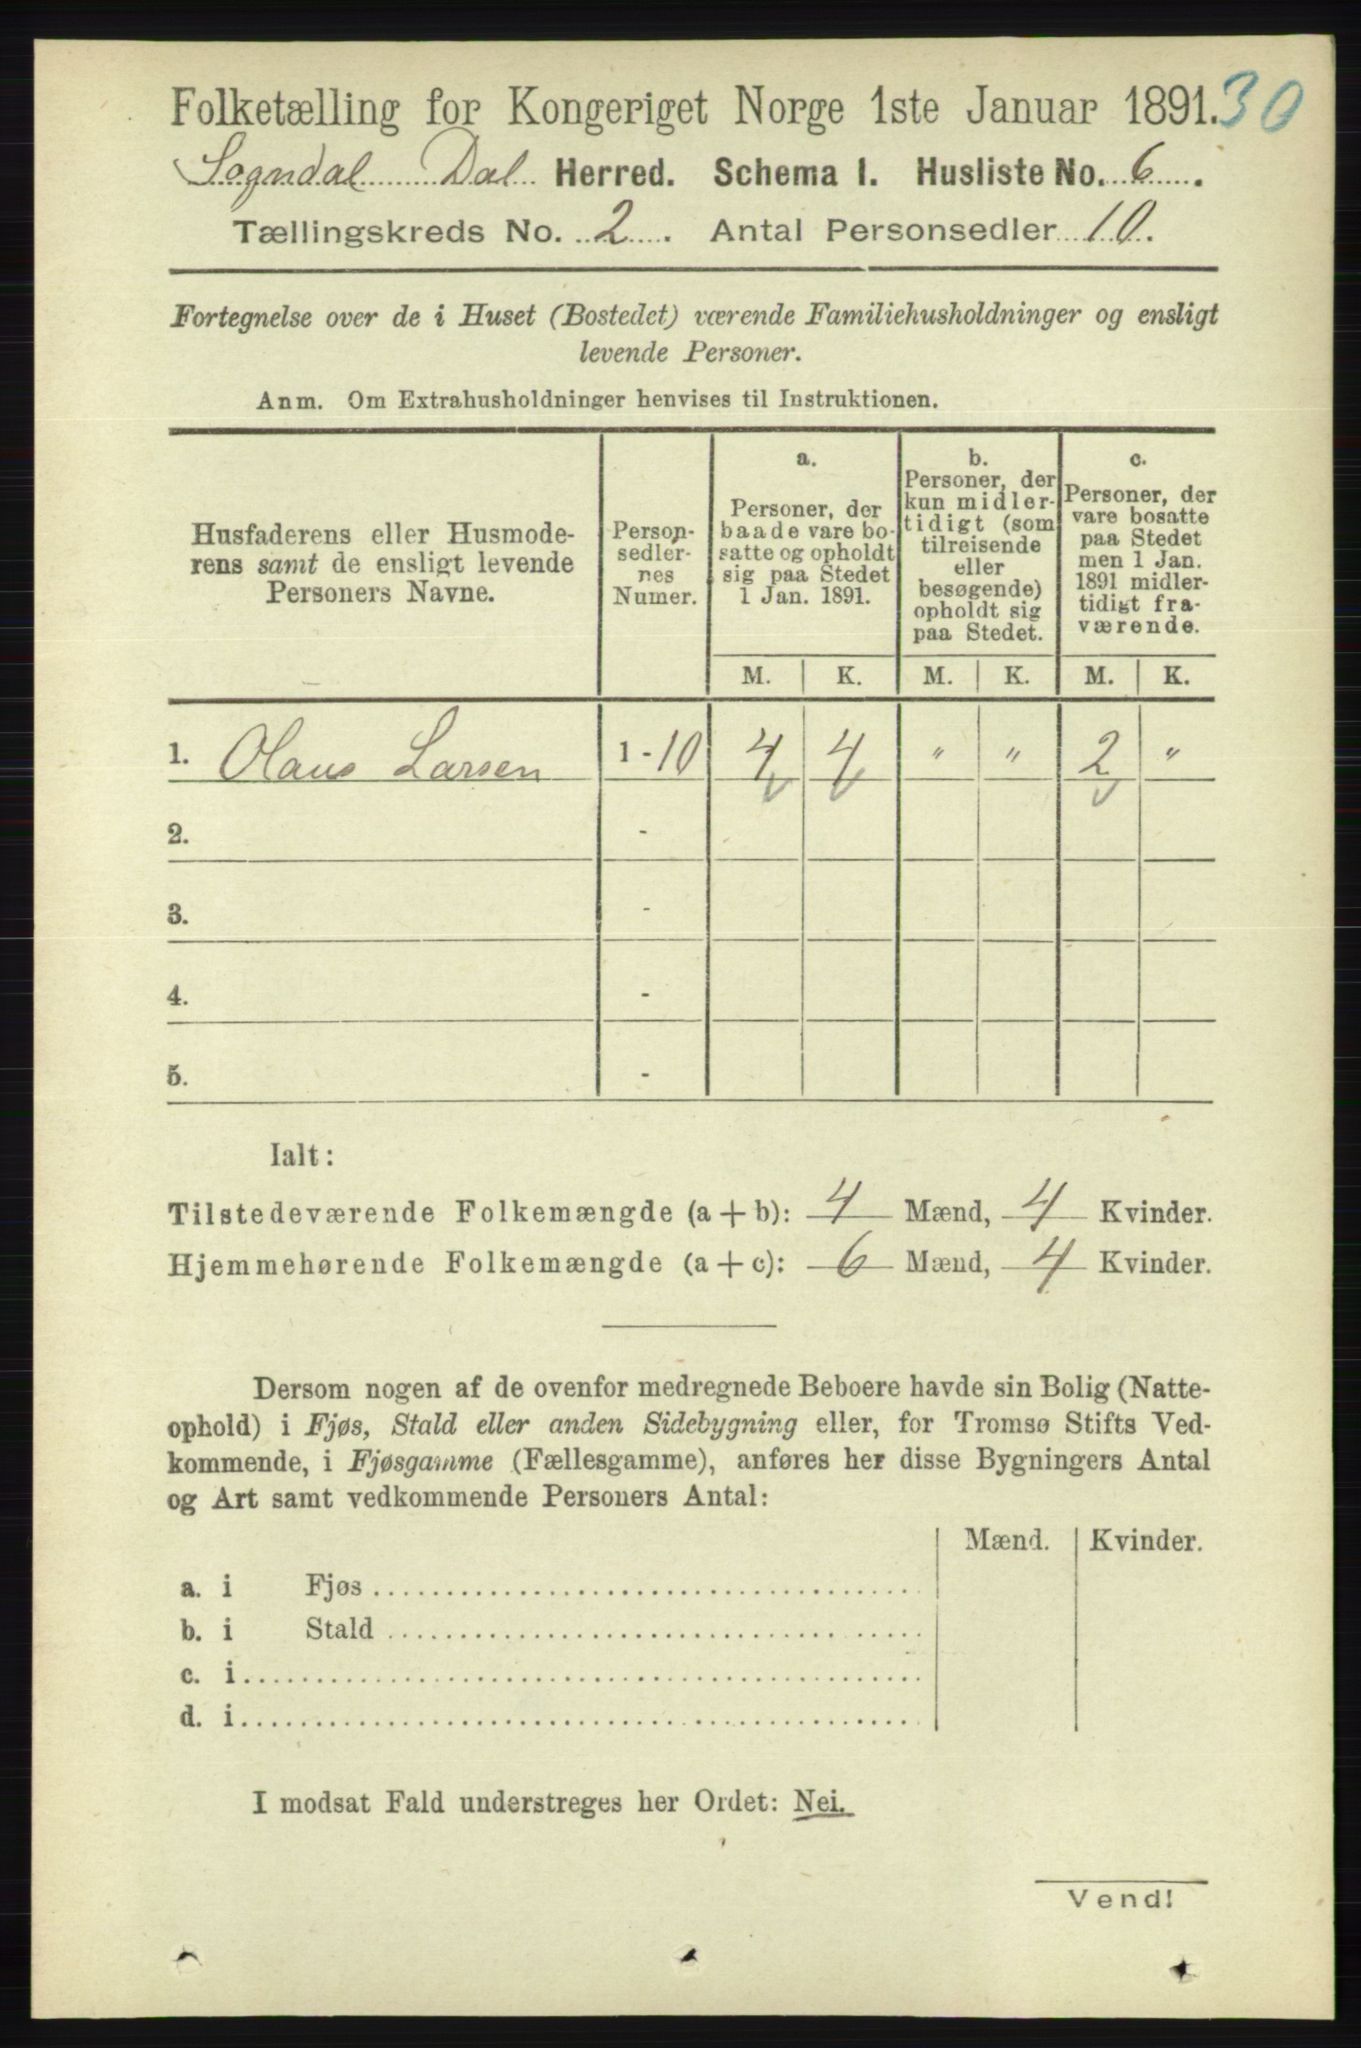 Folketælling for Kongeriget Norge 1ste Januar 1891. 30
Sogndal Dal Herred. Schema 1. Husliste No. 6.
Tællingskreds No. 2. Antal Personsedler 10.
Fortegnelse over de i Huset (Bostedet) værende Familiehusholdninger og ensligt
levende Personer.
Anm. Om Extrahusholdninger henvises til Instruktionen.
Husfaderens eller Husmode-
rens samt de ensligt levende
Personers Navne.
Person-
sedler-
nes
Numer.
a.
Personer, der
baade vare bo-
satte og opholdt
sig paa Stedet
1 Jan. 1891.
b.
Personer, der
kun midler-
tidigt (som
tilreisende
eller
besøgende)
opholdt sig
paa Stedet.
c.
Personer, der
vare bosatte
paa Stedet
men 1 Jan.
1891 midler-
tidigt fra-
værende.
M. K. M. K. M. K.
1. Olaus Larsen 1 - 10 4 4 " " 2 "
2. -
3. -
4. -
5. -
Ialt:
Tilstedeværende Folkemængde (a + b): 4 Mænd, 4 Kvinder.
Hjemmehørende Folkemængde (a + c): 6 Mænd, 4 Kvinder.
Dersom nogen af de ovenfor medregnede Beboere havde sin Bolig (Natte-
ophold) i Fjøs, Stald eller anden Sidebygning eller, for Tromsø Stifts Ved-
kommende, i Fjøsgamme (Fællesgamme), anføres her disse Bygningers Antal
og Art samt vedkommende Personers Antal:
Mænd. Kvinder.
a. i Fjøs
b. i Stald
c. i
d. i
I modsat Fald understreges her Ordet: Nei.
Vend!